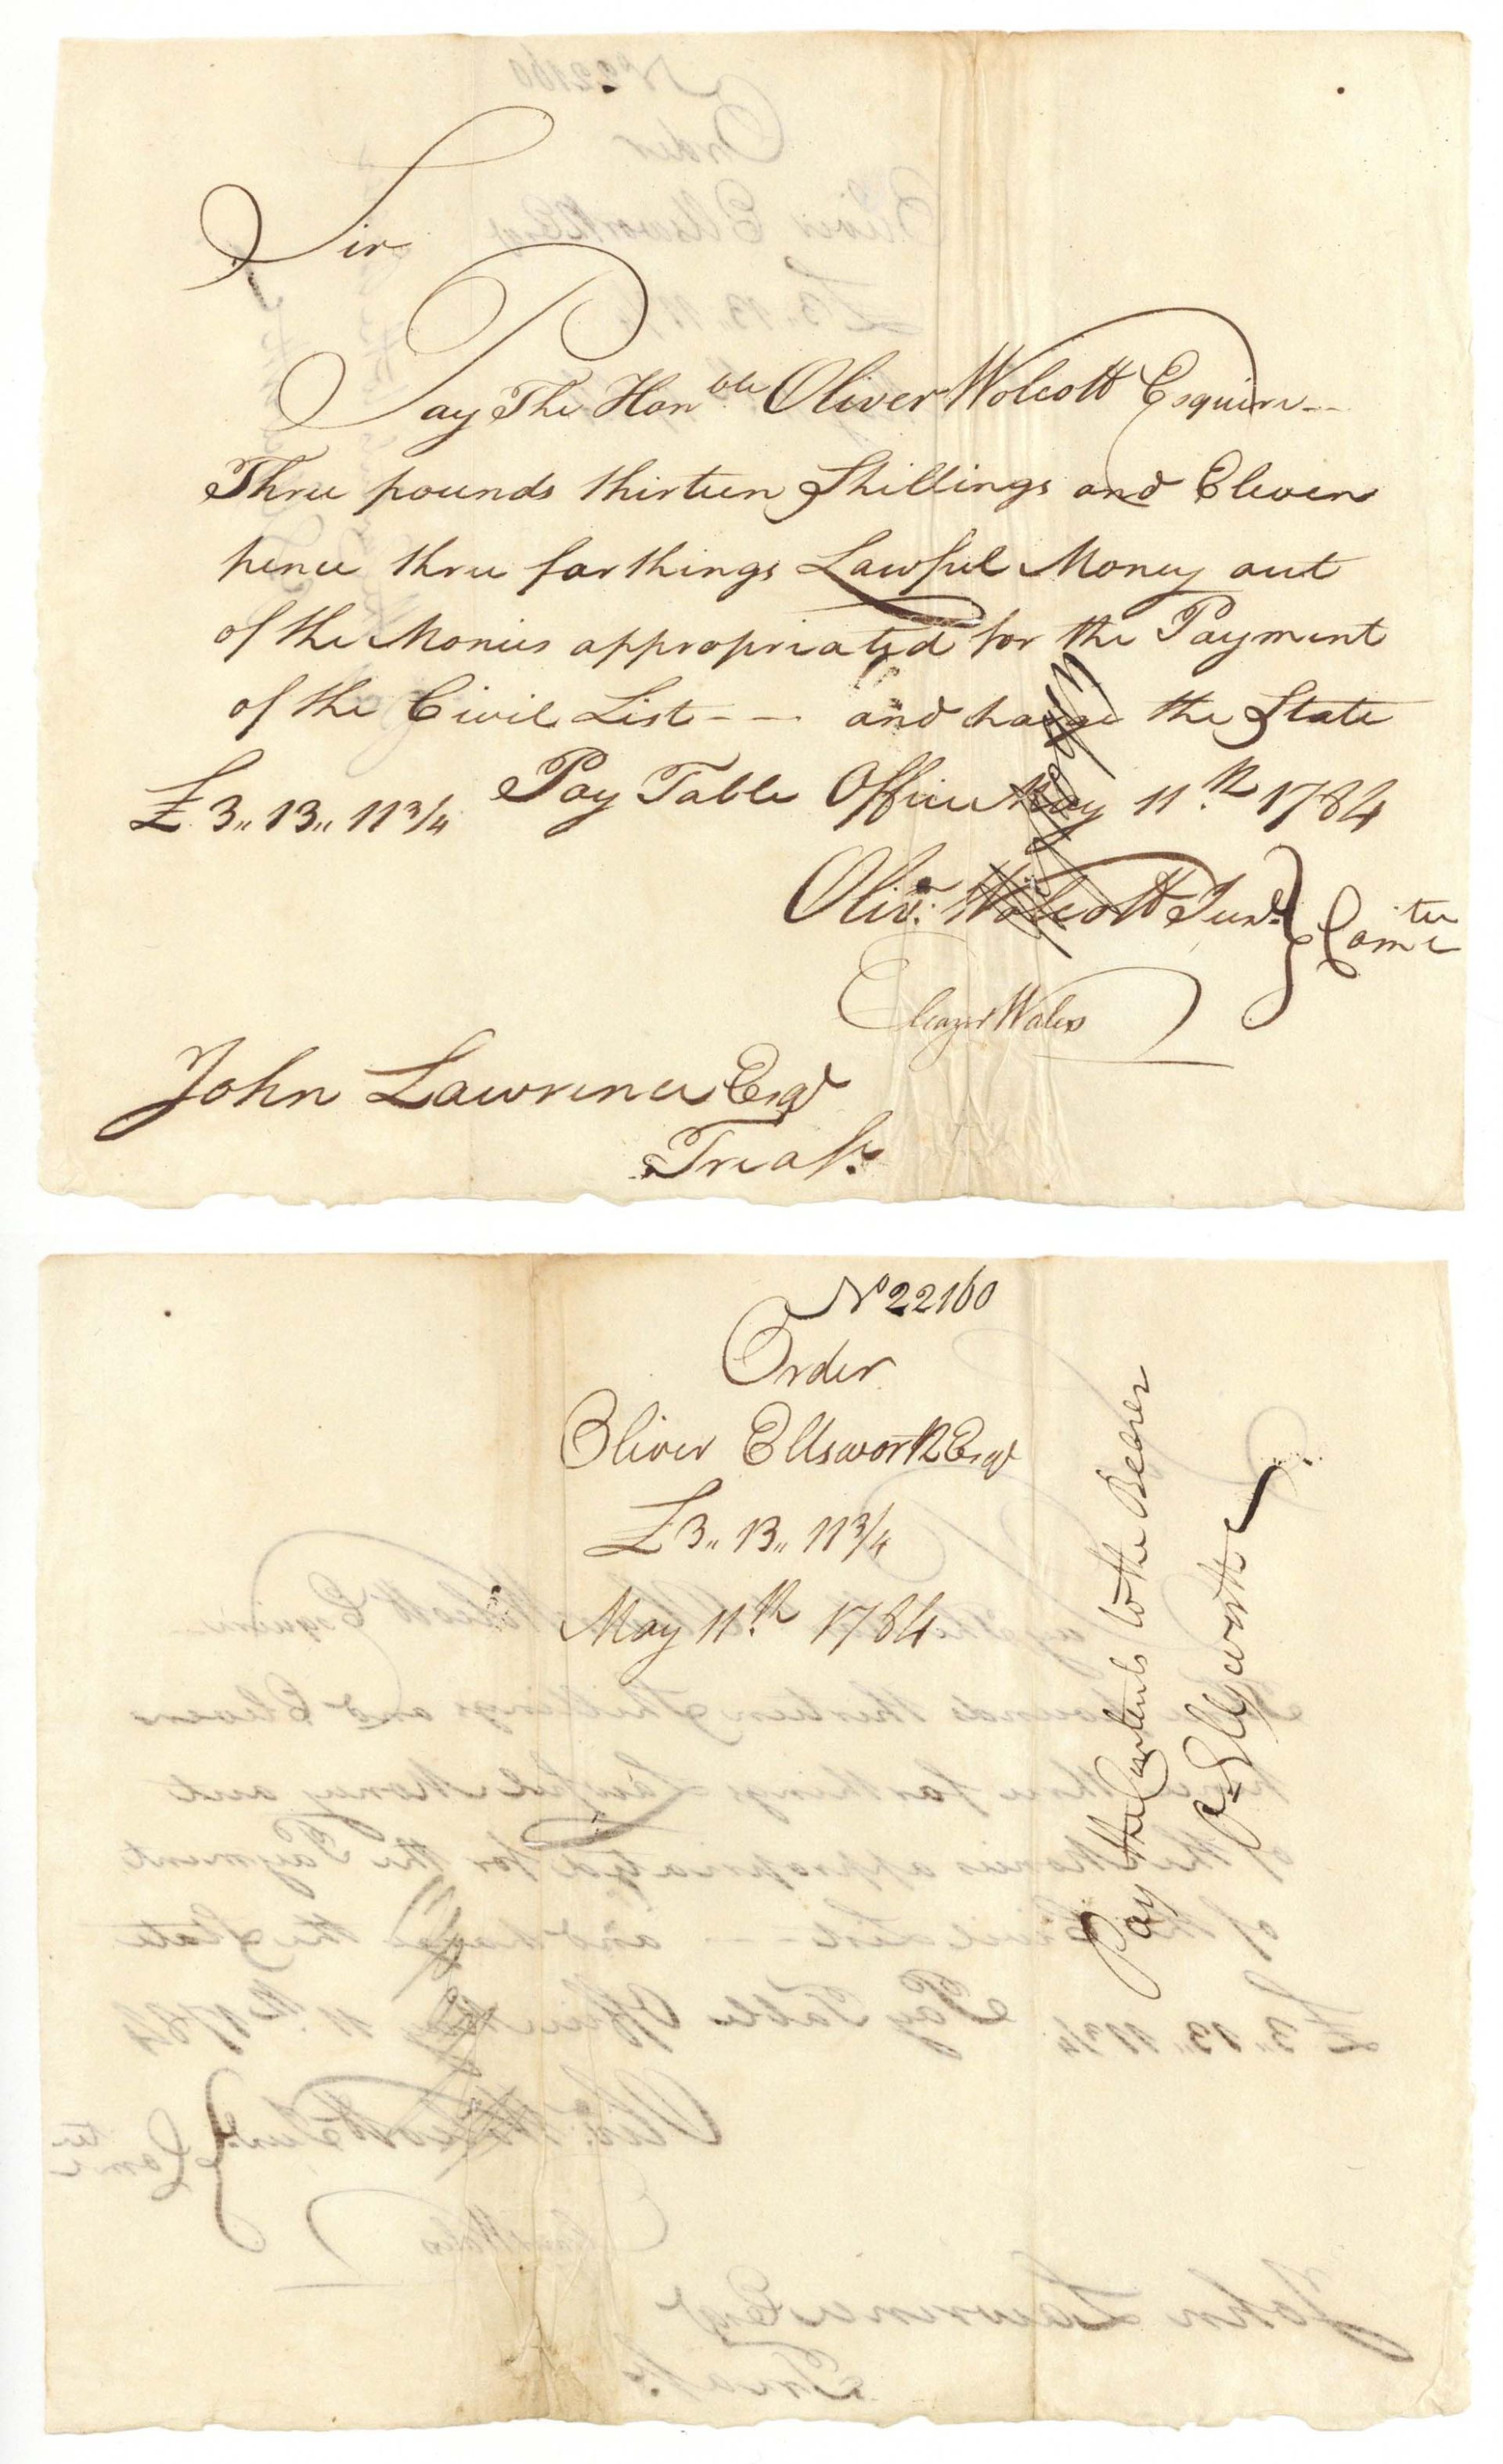 Sir
Pay The Honble Oliver Wolcott Esquire--
Three pounds thirteen Shillings and Eleven
pence three farthings Lawful Money out
of the Monies appropriated for the Payment
of the Civil List -- and charge the State
£3,, 13,, 11 3/4 Pay Table Office May 11th 1784
Olivr. Wolcott Junr. } Comtee
Eleazer Wales
John Lawrence Esqr
Treasr.
No 22160
Order
Oliver Ellsworth Esqr
£3,, 13,, 11 3/4
May 11th 1784
Pay the Contents to the Bearer
O. Ellsworth